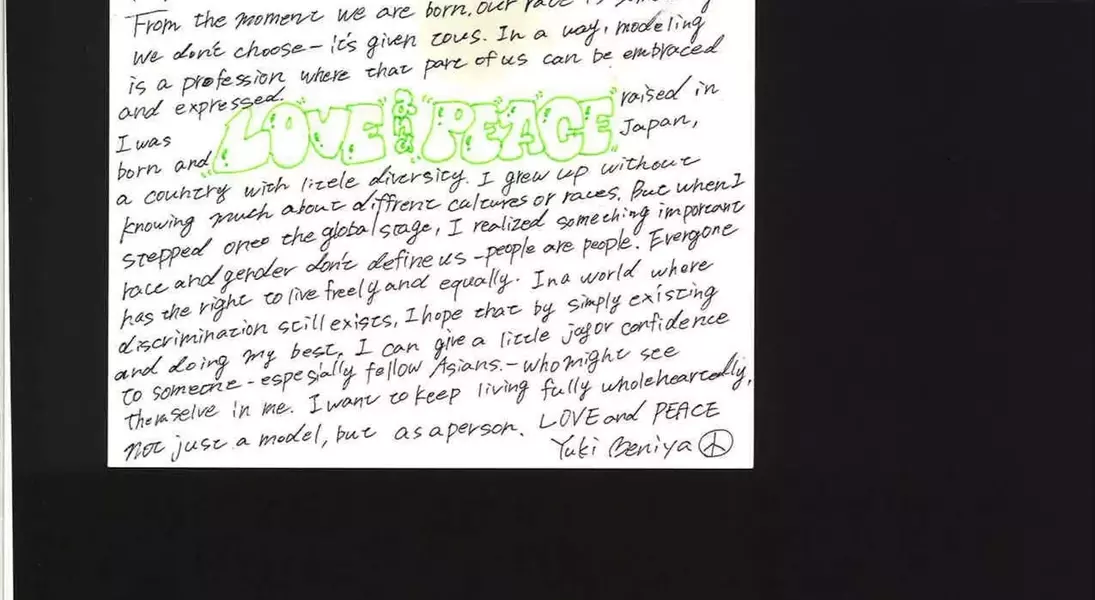 From the moment we are born, our race is
we don't choose — it's given to us. In a way, modeling
is a profession where that part of us can be embraced
and expressed.
LOVE and PEACE
I was raised in
born and Japan,
a country with litele diversity. I grew up without
knowing much about diffrent cultures or races. But when I
stepped onto the global stage, I realized something important
race and gender don't define us — people are people. Everyone
has the right to live freely and equally. In a world where
discrimination still exists, I hope that by simply existing
and doing my best, I can give a little joy or confidence
to someone - especially fellow Asians. — who might see
themselve in me. I want to keep living fully wholeheartedly,
not just a model, but as a person. LOVE and PEACE
Yuki Beniya